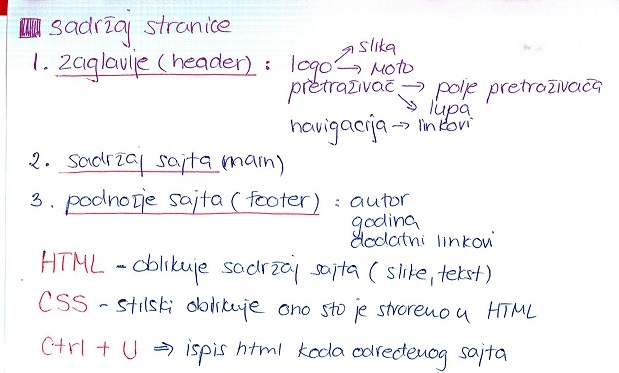 sadržaj stranice
1. zaglavlje (header) : logo → slika
→ MOTO
pretraživač → polje pretraživača
→ lupa
navigacija → linkovi
2. sadržaj sajta (main)
3. podnožje sajta (footer) : autor
godina
dodatni linkovi
HTML - oblikuje sadržaj sajta (slike, tekst)
CSS - stilski oblikuje ono što je stvoreno u HTML
Ctrl + U ⇒ ispis html koda određenog sajta